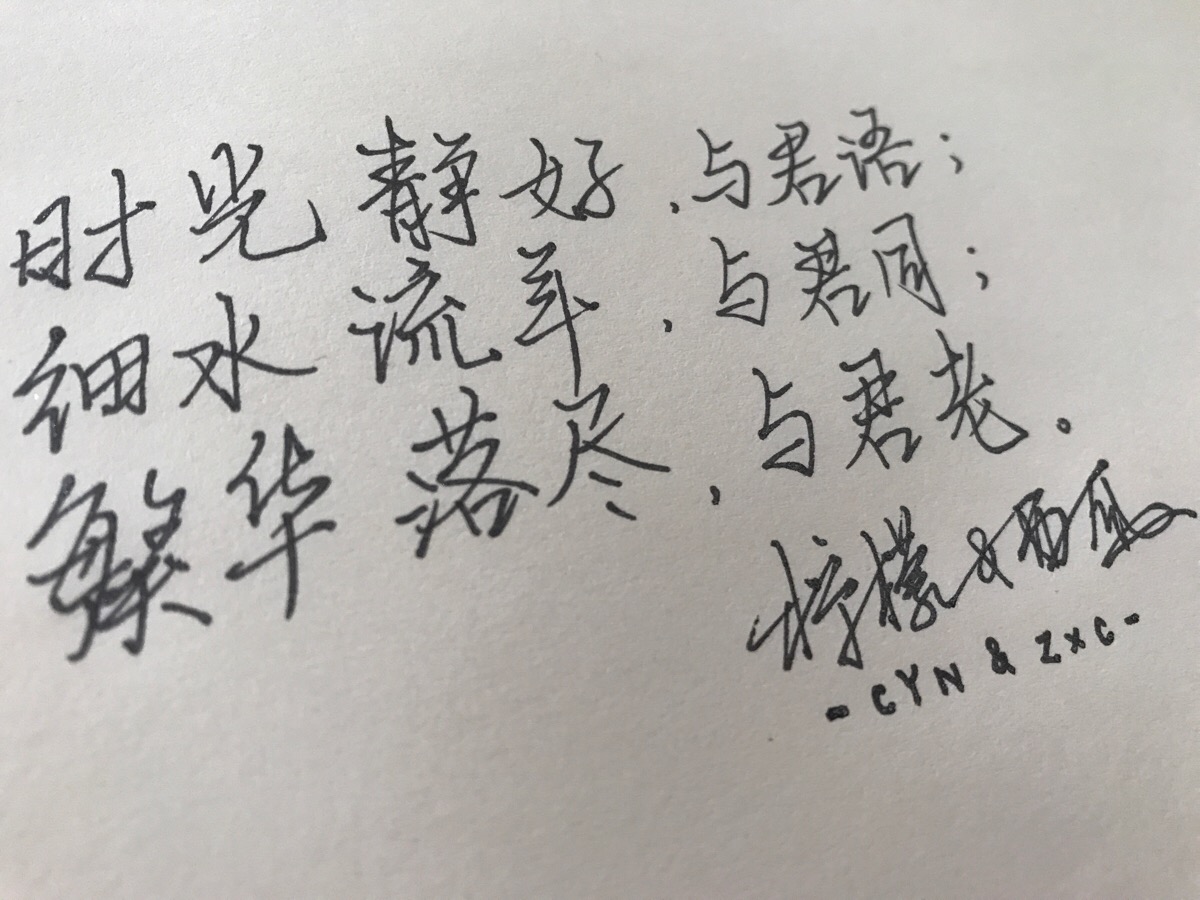 时光静好，与君语；
细水流年，与君同；
繁华落尽，与君老。
柠檬&西
-CYN & ZXC-